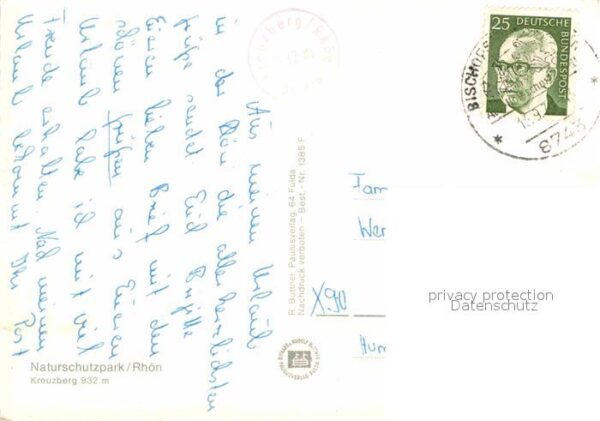 Aus meinem Urlaub
in der Rhön die allerherzlichsten
Grüße sendet Euch Brigitte
Euren lieben Brief mit den
schönen Grüßen aus Eurem
Urlaub habe ich mit viel
Freude erhalten. Nach meinem
Urlaub bekommt Ihr Post
Naturschutzpark/Rhön
Kreuzberg 932 m
R. Büttner, Paulusverlag, 64 Fulda
Nachdruck verboten – Best.-Nr. 1385 F
Kreuzberg/Rhön
25 DEUTSCHE
BUNDESPOST
BISCHOFS
8743
Fam
Wer
X90
Hum
privacy protection
Datenschutz